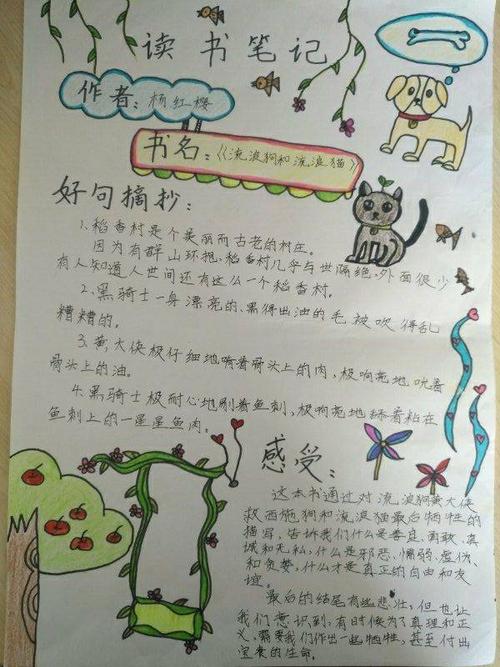 读书笔记
作者：杨红樱
书名：《流浪狗和流浪猫》
好句摘抄：
1.稻香村是个美丽而古老的村庄。
因为有群山环抱，稻香村几乎与世隔绝，外面很少
有人知道人世间还有这么一个稻香村。
2.黑骑士一身漂亮的、黑得出油的毛被吹得乱
糟糟的。
3.黄大侠极仔细地啃着骨头上的肉，极响亮地吮着
骨头上的油。
4.黑骑士极耐心地剔着鱼刺，极响亮地舔着粘在
鱼刺上的一星星鱼肉。
感受：
这本书通过对流浪狗黄大侠
救西施狗和流浪猫最后牺牲的
描写，告诉我们什么是善良、勇敢、真
诚和无私，什么是邪恶、懦弱、虚伪
和贪婪，什么才是真正的自由和友
谊。
最后的结尾有些悲壮，但也让
我们意识到，有时候为了真理和正
义，需要我们作出一起牺牲，甚至付出
宝贵的生命。